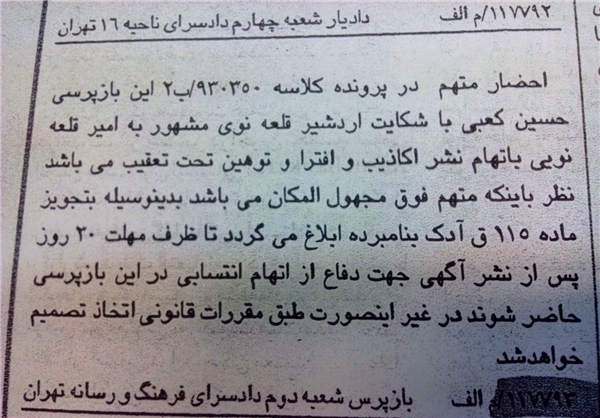 ۱۱۷۷۹۲/م الف دادیار شعبه چهارم دادسرای ناحیه ۱۶ تهران
احضار متهم در پرونده کلاسه ۹۳۰۳۵۰/ب۲ این بازپرسی
حسین کعبی با شکایت اردشیر قلعه نوی مشهور به امیر قلعه
نویی باتهام نشر اکاذیب و افترا و توهین تحت تعقیب می باشد
نظر باینکه متهم فوق مجهول المکان می باشد بدینوسیله بتجویز
ماده ۱۱۵ ق آدک بنامبرده ابلاغ می گردد تا ظرف مهلت ۲۰ روز
پس از نشر آگهی جهت دفاع از اتهام انتسابی در این بازپرسی
حاضر شوند در غیر اینصورت طبق مقررات قانونی اتخاذ تصمیم
خواهدشد
۱۱۷۷۹۳/م الف بازپرس شعبه دوم دادسرای فرهنگ و رسانه تهران